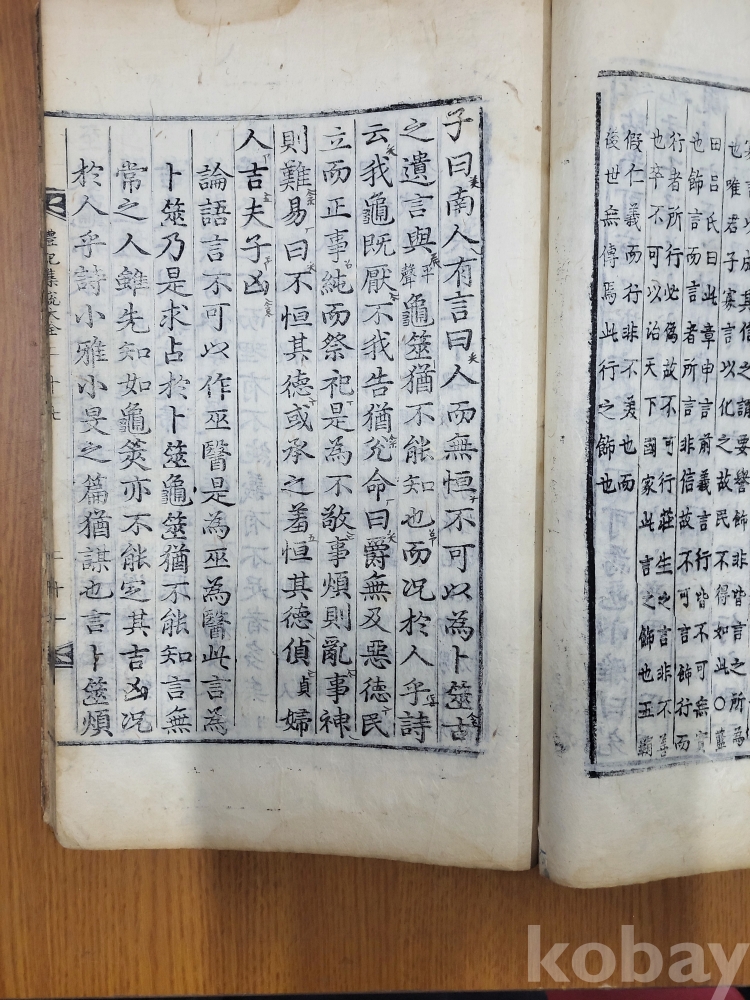 言以成其信之謂要譽飾非皆言之所為
也唯君子寡言以化之故民不得如此○藍
田呂氏曰此章申言前義言行皆不可無實
也飾言而言者所言非信故不可言飾行而
行者所行必偽故不可行莊生之言非不善
也卒不可以治天下國家此言之飾也五霸
假仁義而行非不美也而
後世無傳焉此行之飾也
子曰南人有言曰人而無恒不可以為卜筮古
之遺言與平聲龜筮猶不能知也而况於人乎詩
云我龜既厭不我告猶兊命曰爵無及惡德民
立而正事純而祭祀是為不敬事煩則亂事神
則難易曰不恒其德或承之羞恒其德偵貞婦
人吉夫子凶
論語言不可以作巫醫是為巫為醫此言為
卜筮乃是求占於卜筮龜筮猶不能知言無
常之人雖先知如龜筴亦不能定其吉凶况
於人乎詩小雅小旻之篇猶謀也言卜筮煩
禮記集說大全二十七
kobay